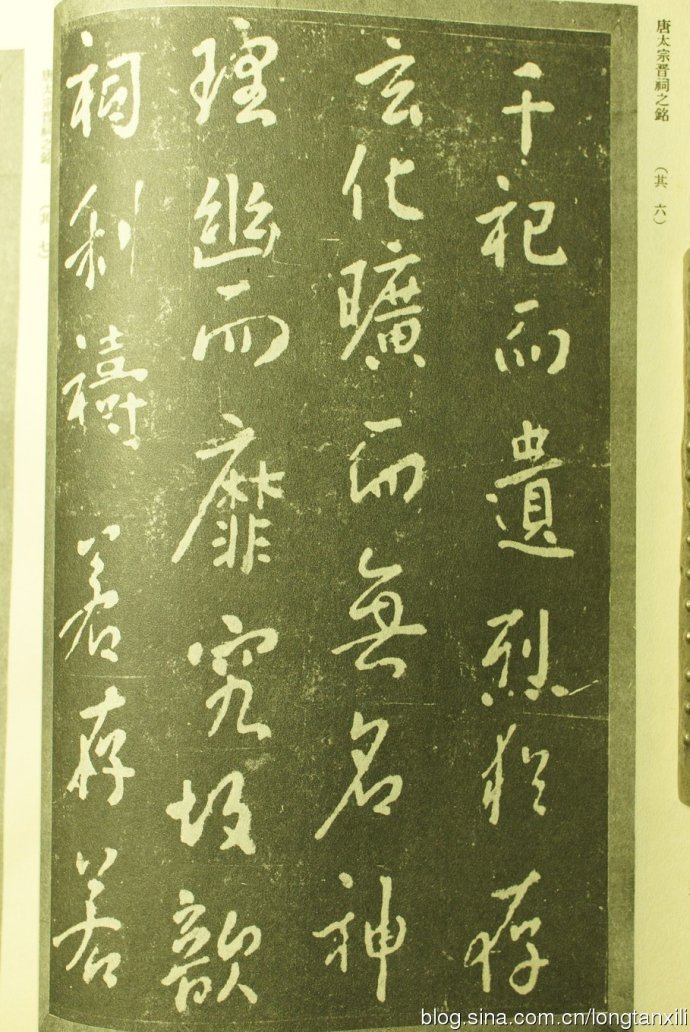 唐太宗晋祠之銘 （其六）
千祀而遺烈猶存
玄化曠而無名神
理幽而靡究故歆
祠利禱若存若
唐太宗晋祠之銘 （其七）
blog.sina.com.cn/longtanxili